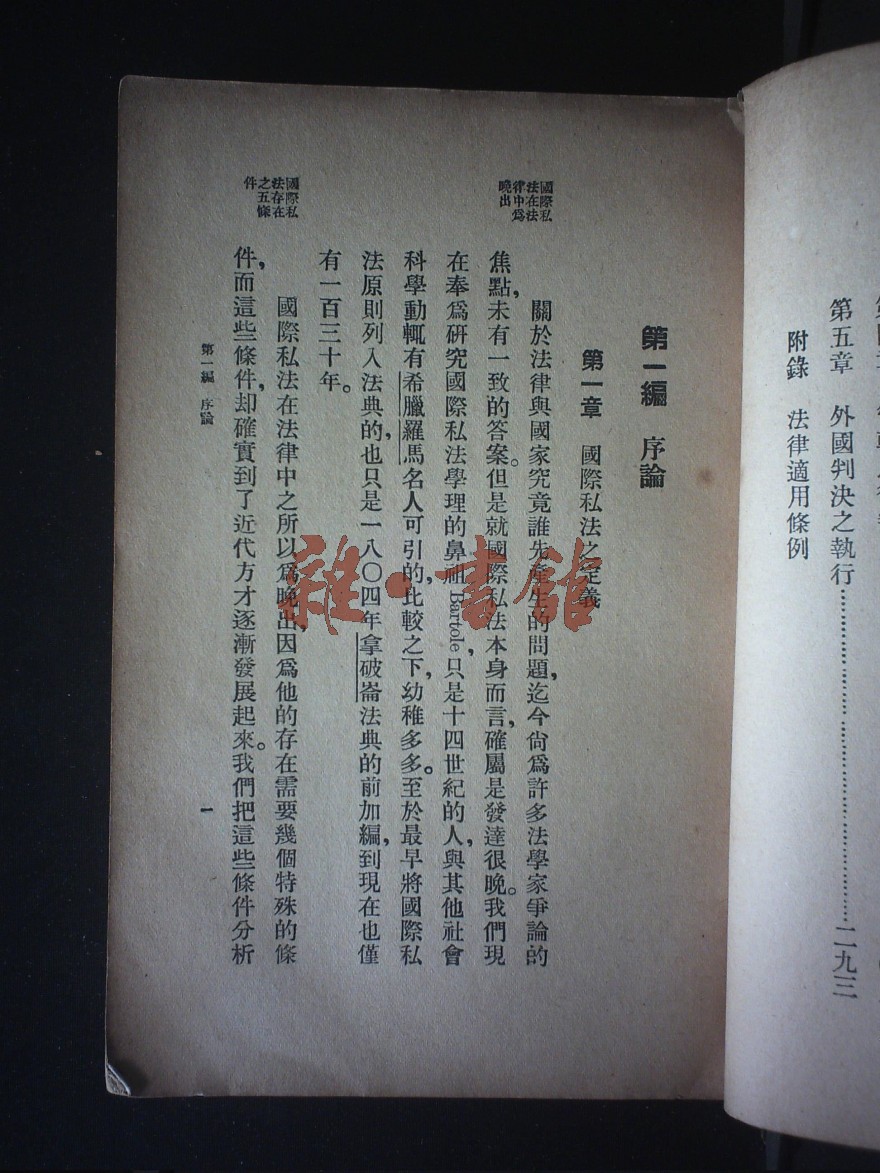 第五章　外國判決之執行……………………二九三
附錄　法律適用條例
第一編　序論
第一章　國際私法之定義
國際私
法在法
律中爲
晚出
關於法律與國家究竟誰先產生的問題，迄今尙爲許多法學家爭論的
焦點，未有一致的答案。但是就國際私法本身而言，確屬是發達很晚。我們現
在奉爲研究國際私法學理的鼻祖Bartole，只是十四世紀的人，與其他社會
科學動輒有希臘羅馬名人可引的，比較之下，幼稚多多。至於最早將國際私
法原則列入法典的，也只是一八〇四年拿破崙法典的前加編，到現在也僅
有一百三十年。
國際私
法存在
之五條
件
國際私法在法律中之所以爲晚出，因爲他的存在需要幾個特殊的條
件，而這些條件，却確實到了近代方才逐漸發展起來。我們把這些條件分析
第一編　序論
一
雜·書館